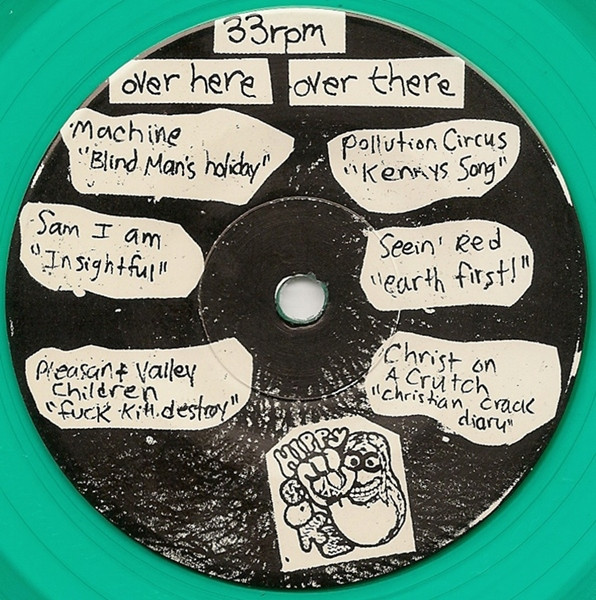 33rpm
over here
over there
Machine
"Blind Man's holiday"
Sam I am
"Insightful"
Pleasant Valley
Children
"fuck.kill.destroy"
Pollution Circus
"Kennys Song"
Seein' Red
"earth first!"
Christ on
A Crutch
"christian crack
diary"
HIPPY